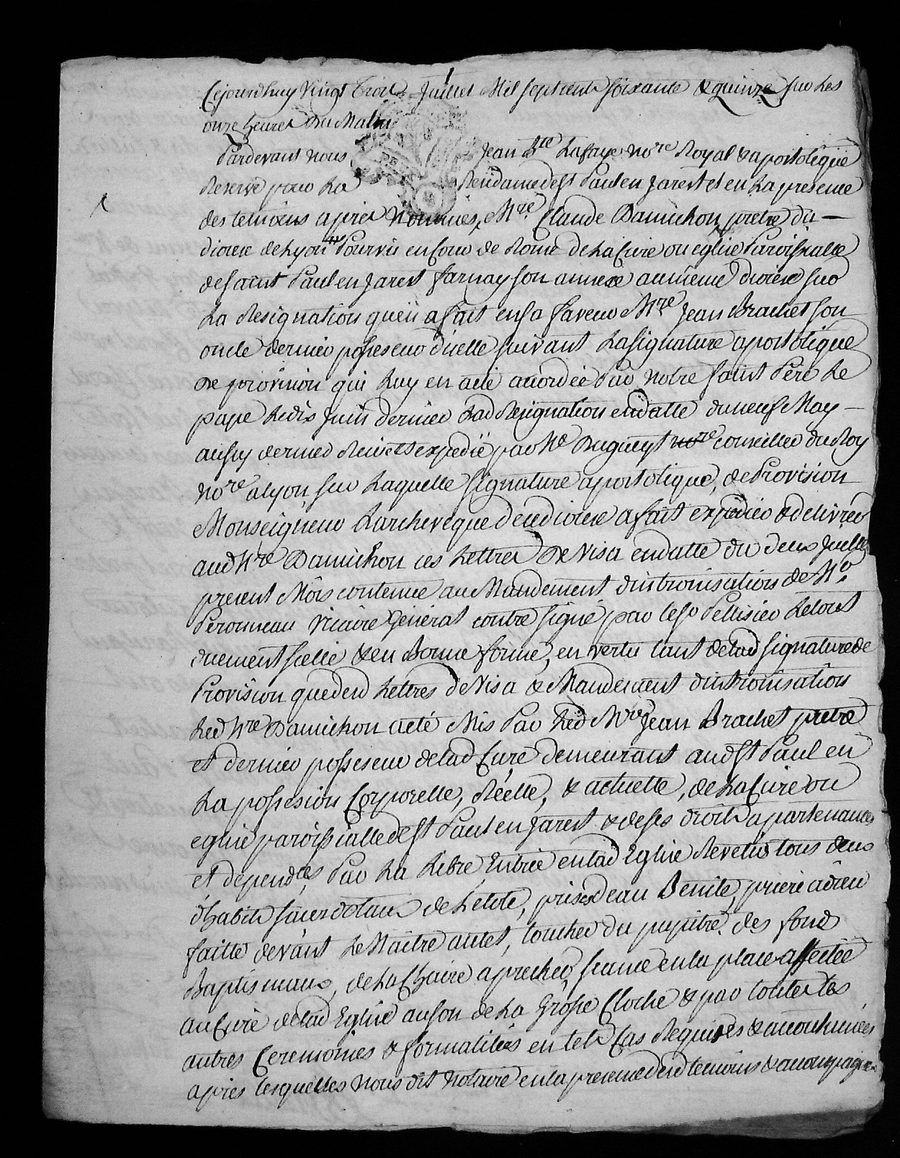 Cejourdhuy Vingt Trois Juillet Mil Sept Cent Soixante & quinze sur Les
onze heures Du Matin
Pardevant nous Jean Bte Lafaye nore Royal & apostolique
Reservé pour La dame de St Paul en Jarest et en La presence
des temoins apres Nommés, Mre. Claude Damichon pretre du
diocese de Lyon Pourvu en Cour de Rome de La Cure ou eglise Paroissialle
de Saint Paul en Jarest farnay son annexe au mème diocese sur
La Resignation qu'en a fait en sa faveur Mre Jean Brachet son
oncle dernier possesseur d'icelle suivant La signature apostolique
De provision qui Luy en a été accordée Par notre saint Pere Le
pape Le dix Juin dernier Lad Resignation en datte du neuf May
aussy dernier Reçue & expediée par Me Dugueyt conseiller du Roy
nore a Lyon, sur Laquelle signature apostolique, de Provision
Monseigneur L'archevèque de ce diocese a fait expedier & delivrer
aud Mre Damichon ces Lettres De Visa en datte du deux Juillet
present Mois contenues au Mandement d'intronisation de Mr
Peronneau Vicaire General contre signé par le Sr Pellissier Le tout
duement scellé & en Bonne forme, en vertu tant de lad signature de
Provision que desd Lettres de Visa & Mandement d'intronisation
Led Mre Damichon a eté Mis Par Led Mre Jean Brachet pretre
et dernier possesseur de lad Cure demeurant aud St Paul en
La possession Corporelle, Réelle, & actuelle, de La Cure ou
eglise paroissialle de St Paul en Jarest & de ses droits apartenances
et dependces Par La Libre Entrée en lad Eglise Revetus tous deux
d'habits sacerdotaux de L'etole, prise d'eau Benite, priere à dieu
faitte devant Le Maitre autel, toucher du pupitre, des fonds
Baptismaux, de La Chaire a precher, seance en La place affectée
au Curé de lad Eglise au son de La Grosse Cloche & par toutes Les
autres Ceremonies & formalités en tel Cas Requises & accoutumées
apres Lesquelles nous dit notaire en la presence desd temoins & accompagné